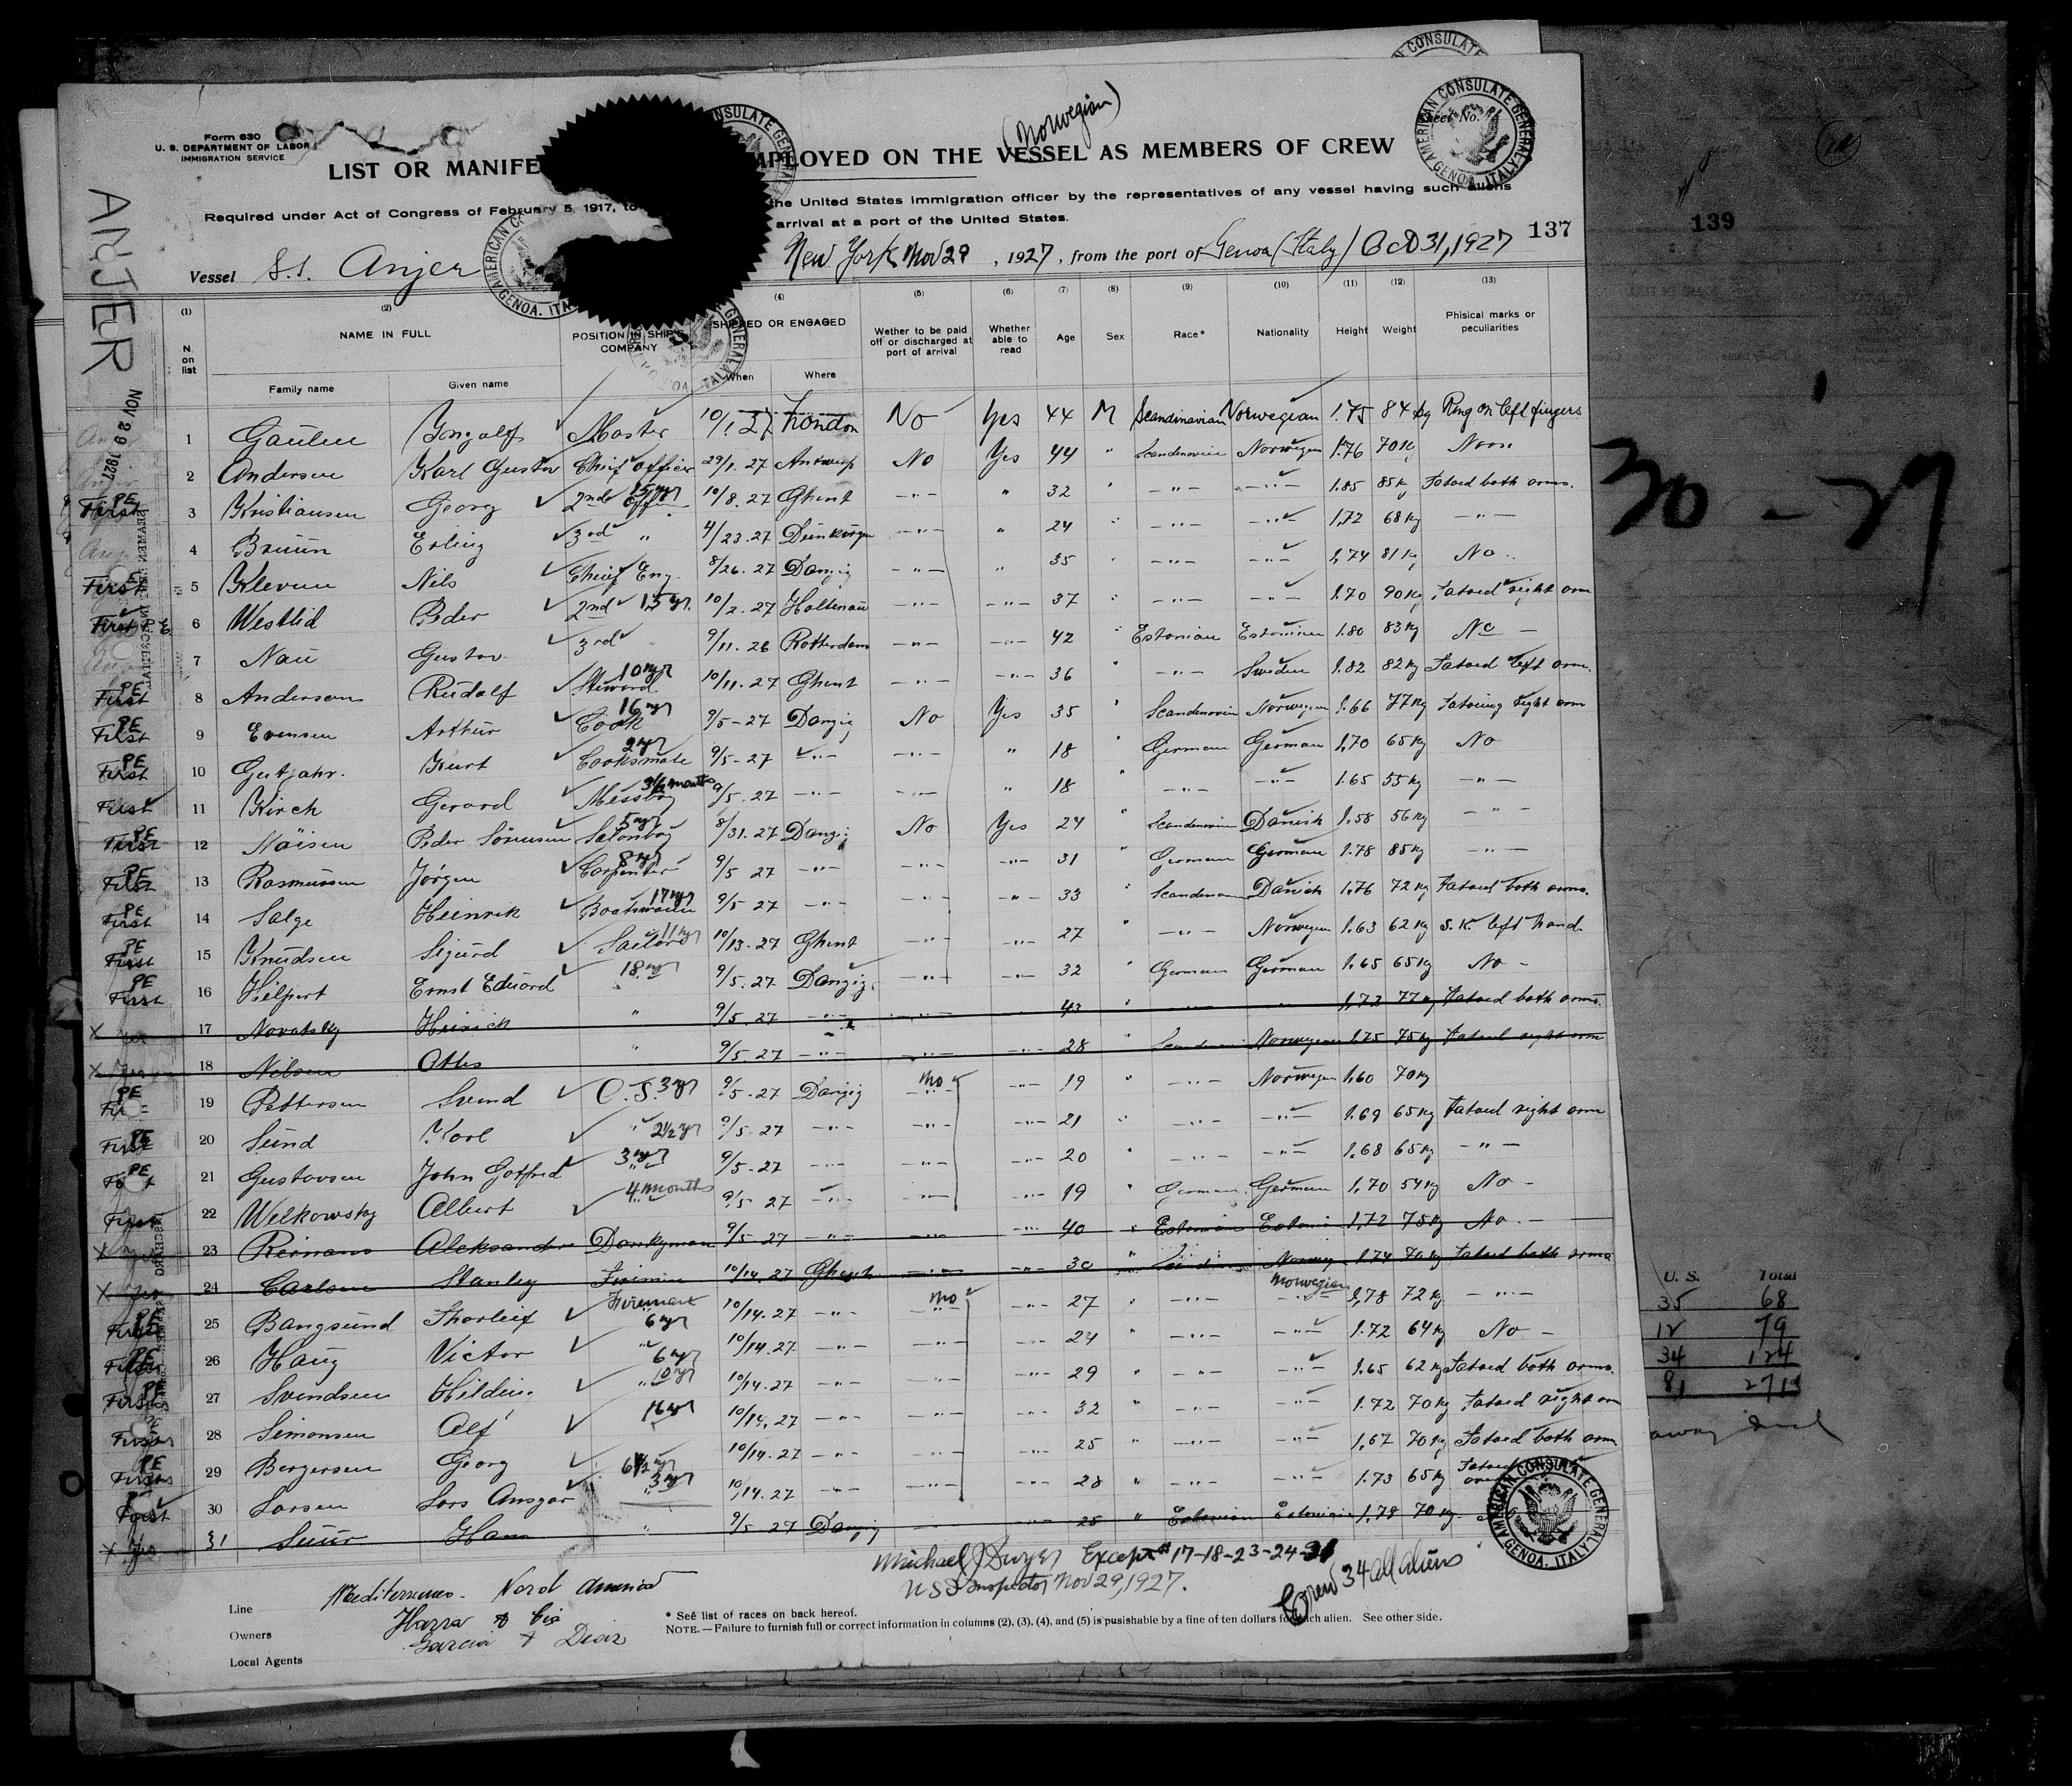 (Norwegian)
Form 630
U. S. DEPARTMENT OF LABOR
IMMIGRATION SERVICE
LIST OR MANIFE MPLOYED ON THE VESSEL AS MEMBERS OF CREW
Required under Act of Congress of February 5, 1917, to the United States immigration officer by the representatives of any vessel having such aliens
arrival at a port of the United States.
137
139
ANJER
NOV 29 1927
Vessel S.S. Anjer New York Nov 29, 1927, from the port of Genoa (Italy) Oct 31, 1927
AMERICAN CONSULATE GENERAL GENOA, ITALY
(1) (2) (4) (5) (6) (7) (8) (9) (10) (11) (12) (13)
N. on list NAME IN FULL POSITION IN SHIP'S COMPANY SHIPPED OR ENGAGED Wether to be paid off or discharged at port of arrival Whether able to read Age Sex Race* Nationality Height Weight Phisical marks or peculiarities
Family name Given name When Where
1 Master 10/1 27 London No Yes 44 M Scandinavian Norwegian 1.75 84 kg Ring on left fingers
2 Andersen Karl Gustav Chief officer 29/1. 27 Antwerp No Yes 44 " Scandinavian Norwegian 1.76 70 kg None
First PE 3 Kristiansen Georg 2nd Officer 15 yr 10/8. 27 Ghent -"- " 32 " -"- -"- 1.85 85 kg Tatoed both arms.
4 Bruun Erling 3rd " 4/23. 27 Dunkurgen -"- " 24 " -"- -"- 1,72 68 kg -"-
First 5 Kleven Nils Chief Eng. 8/26. 27 Danzig -"- " 35 -"- -"- 1,74 81 kg No
First 6 Westlid Peder 2nd 15 yr. 10/2. 27 Holtenau -"- -"- 37 " -"- -"- 1.70 90 kg Tatoed right arm
7 Nau Gustav 3rd 9/11. 26 Rotterdam -"- -"- 42 " Estonian Estonian 1.80 83 kg No -
First PE 8 Anderson Rudolf Steward 10 yr 10/11. 27 Ghent -"- -"- 36 " -"- Sweden 1.82 82 kg Tatoed left arm.
First PE 9 Evensen Arthur Cook 16 yr 9/5-27 Danzig No Yes 35 " Scandinavian Norwegian 1.66 77 kg Tatoing right arm
First PE 10 Gutjahr. Kurt Cooksmate 2 yr 9/5-27 -"- -"- " 18 German German 1,70 65 kg No
First 11 Kirch Gerard Messboy 3½ months 9/5. 27 -"- -"- " 18 " -"- -"- 1.65 55 kg -"-
First PE 12 Näisen Peder Sörensen Salonboy 5 yr 8/31. 27 Danzig No Yes 24 " Scandinavian Danish 1.58 56 kg -"-
First PE 13 Rasmussen Jörgen Carpenter 8 yr 9/5 27 -"- -"- -"- 31 " German German 1.78 85 kg -"-
First PE 14 Salge Heinrik Boatswain 17 yr 9/5 27 -"- -"- -"- 33 " Scandinavian Danish 1,76 72 kg Tatoed both arms.
First PE 15 Knudsen Sigurd Sailor 11 yr 10/13. 27 Ghent -"- -"- 27 " -"- Norwegian 1.63 62 kg S.K. left hand.
First PE 16 Hilpert Ernst Eduard 18 yr 9/5. 27 Danzig. -"- -"- 32 " German German 1.65 65 kg No -
x 17 Novatsky Heinrich " 9/5. 27 -"- -"- 43 " 1,72 77 kg Tatoed both arms.
x 18 Nilsen Otto " 9/5. 27 -"- -"- -"- 28 " Norwegian 1.75 75 kg Tatoed right arm
PE 19 Pettersen Svend O.S. 3 yr 9/5. 27 Danzig No -"- 19 " -"- Norwegian 1,60 70 kg
First PE 20 Sund Karl " 2½ yr 9/5. 27 -"- -"- -"- 21 " -"- -"- 1.69 65 kg Tatoed right arm
PE 21 Gustavsen John Gotfred 3 yr " 9/5. 27 -"- -"- -"- 20 " -"- -"- 1,68 65 kg -"-
First 22 Welkowsky Albert 4 months 9/5 27 -"- -"- -"- 19 " German German 1,70 54 kg No -
x 23 Reimans Aleksander Donkyman 9/5 27 -"- -"- -"- 40 " Estonian Estonia 1,72 75 kg No. -
x 24 Carlsen Stanley 10/14. 27 Ghent -"- -"- 30 " 1.74 70 kg Tatoed both arms
PE 25 Bangsund Thorleif Fireman 6 yr 10/14. 27 -"- No -"- 27 " -"- Norwegian 1,78 72 kg -"-
PE 26 Haug Victor " 6 yr 10/14. 27 -"- -"- -"- 24 " -"- -"- 1.72 64 kg No -
First PE 27 Svendsen Hilding " 10 yr 10/14. 27 -"- -"- -"- 29 " -"- -"- 1.65 62 kg Tatoed both arms.
28 Simonsen Alf 16 yr 10/14. 27 -"- -"- -"- 32 " -"- -"- 1.72 70 kg Tatoed right arm
First PE 29 Bergersen Georg 6½ yr 10/14. 27 -"- -"- -"- 25 " -"- -"- 1,67 70 kg Tatoed both arm
First 30 Larsen Lars Ansgar 3 yr 10/14. 27 -"- -"- -"- 28 " -"- -"- 1.73 65 kg Tatoed
x 31 Suur Hans " 9/5 27 Danzig 25 " Estonian Estonian 1,78 70 kg.
AMERICAN CONSULATE GENERAL GENOA, ITALY
Michael J Dwyer Except # 17-18-23-24-31
US Inspector Nov 29, 1927.
Crew 34 all aliens
Line
Owners
Local Agents Garcia & Diaz
* See list of races on back hereof.
NOTE. — Failure to furnish full or correct information in columns (2), (3), (4), and (5) is pusishable by a fine of ten dollars for each alien. See other side.
30 - 27
U. S. Total
35 68
12 79
34 124
81 271